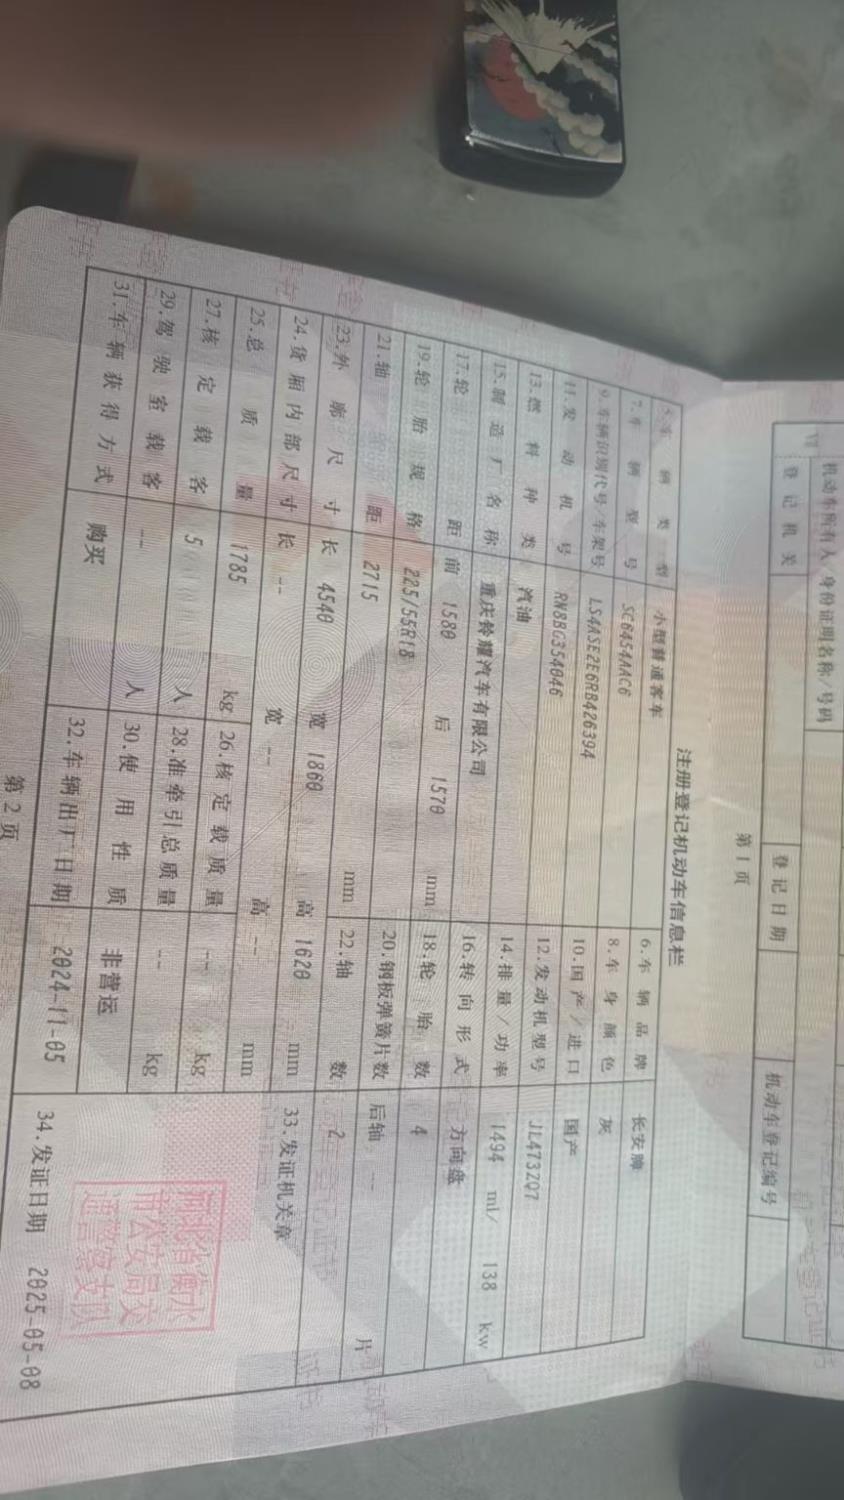 机动车所有人/身份证明名称/号码
登记机关 登记日期 机动车登记编号
第1页
注册登记机动车信息栏
5.车辆类型 小型普通客车 6.车辆品牌 长安牌
7.车辆型号 SC6454AAC6 8.车身颜色 灰
9.车辆识别代号/车架号 LS4ASE2E6RB426394 10.国产/进口 国产
11.发动机号 RN8BG354046 12.发动机型号 JL473ZQ7
13.燃料种类 汽油 14.排量/功率 1494 ml/ 138 kw
15.制造厂名称 重庆铃耀汽车有限公司 16.转向形式 方向盘
17.轮距 前 1580 后 1570 mm 18.轮胎数 4
19.轮胎规格 225/55R18 20.钢板弹簧片数 后轴 -- 片
21.轴距 2715 mm 22.轴数 2
23.外廓尺寸 长 4540 宽 1860 高 1620 mm 33.发证机关章
24.货厢内部尺寸 长 -- 宽 -- 高 -- mm
25.总质量 1785 kg 26.核定载质量 -- kg
27.核定载客 5 人 28.准牵引总质量 -- kg
29.驾驶室载客 -- 人 30.使用性质 非营运
31.车辆获得方式 购买 32.车辆出厂日期 2024-11-05 34.发证日期 2025-05-08
河北省衡水
市公安局交
通警察支队
第2页